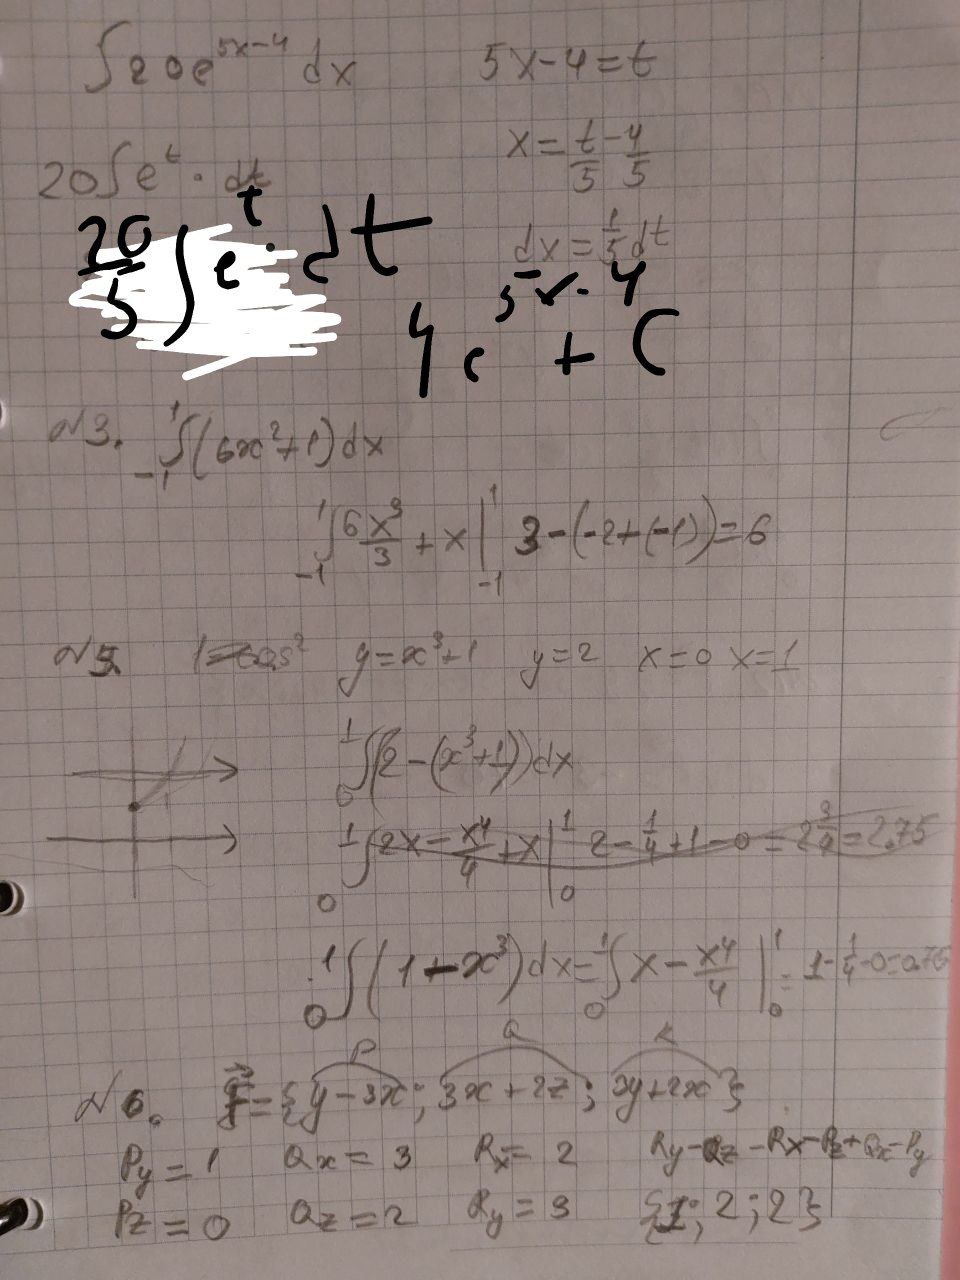 ∫20e^(5x-4) dx    5x-4=t
x = t/5 - 4/5
20∫e^t · dt
dx = 1/5 dt
20/5 ∫e^t · dt
4e^(5x-4) + C
N3. ∫_{-1}^{1} (6x²+1)dx
∫_{-1}^{1} 6x³/3 + x |_{-1}^{1} 3-(-2+(-1))=6
N5. y=x³+1  y=2  x=0  x=1
∫_0^1 (2-(x³+1))dx
∫_0^1 2x - x⁴/4 + x |_0^1 2 - 1/4 + 1 - 0 = 2 3/4 = 2.75
∫_0^1 (1-x³)dx = ∫_0^1 x - x⁴/4 |_0^1 = 1 - 1/4 - 0 = 0.75
P  Q
N6. = {y-3x; 3x+2z; 3y+2x}
Py = 1  Qx = 3  Rx = 2  Ry-Qz - Rx-Pz + Qx-Py
Pz = 0  Qz = 2  Ry = 3  {1; 2; 2}